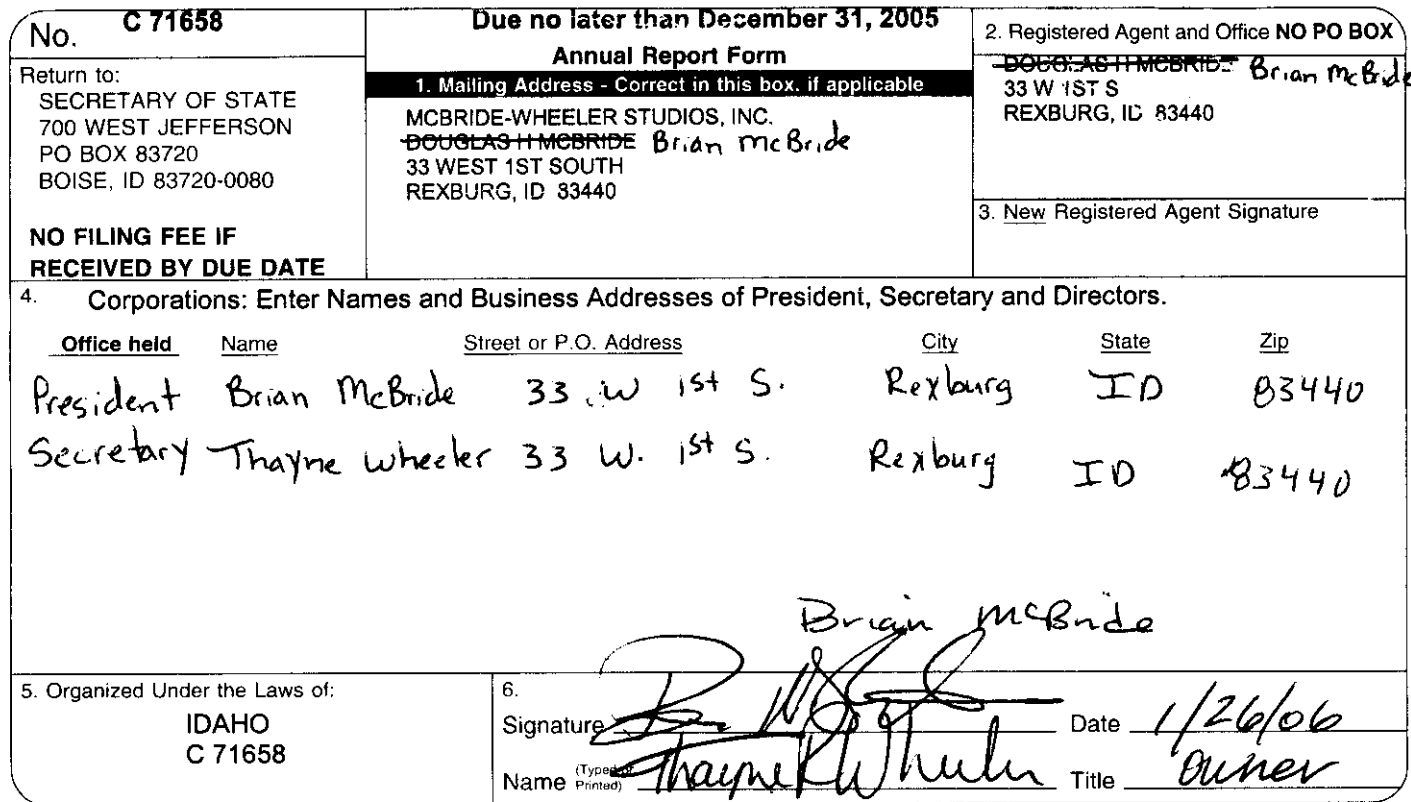 No. C 71658
Return to:
SECRETARY OF STATE
700 WEST JEFFERSON
PO BOX 83720
BOISE, ID 83720-0080
NO FILING FEE IF
RECEIVED BY DUE DATE
Due no later than December 31, 2005
Annual Report Form
1. Mailing Address - Correct in this box, if applicable
MCBRIDE-WHEELER STUDIOS, INC.
DOUGLAS H MCBRIDE Brian McBride
33 WEST 1ST SOUTH
REXBURG, ID 83440
2. Registered Agent and Office NO PO BOX
DOUGLAS H MCBRIDE Brian McBride
33 W 1ST S
REXBURG, ID 83440
3. New Registered Agent Signature
4. Corporations: Enter Names and Business Addresses of President, Secretary and Directors.
Office held Name Street or P.O. Address City State Zip
President Brian McBride 33 W 1st S. Rexburg ID 83440
Secretary Thayne Wheeler 33 W. 1st S. Rexburg ID 83440
Brian McBride
5. Organized Under the Laws of:
IDAHO
C 71658
6.
Signature Date 1/26/06
Name (Typed or Printed) Thayne R Wheeler Title Owner